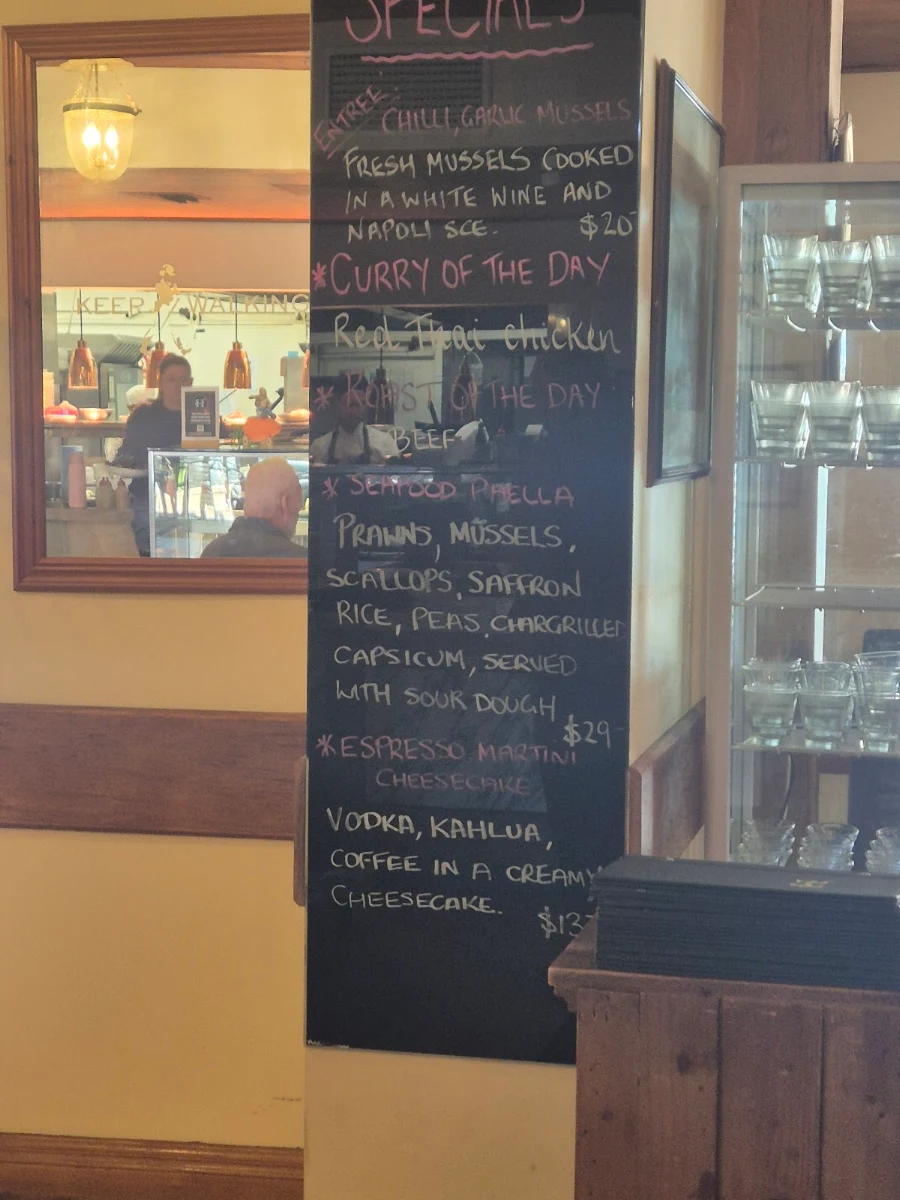 SPECIALS
ENTREE
CHILLI, GARLIC MUSSELS
FRESH MUSSELS COOKED
IN A WHITE WINE AND
NAPOLI SCE. $20
*CURRY OF THE DAY
Red Thai chicken
* ROAST OF THE DAY
BEEF
* SEAFOOD PAELLA
PRAWNS, MUSSELS,
SCALLOPS, SAFFRON
RICE, PEAS, CHARGRILLED
CAPSICUM, SERVED
WITH SOUR DOUGH
$29
*ESPRESSO MARTINI
CHEESECAKE
VODKA, KAHLUA,
COFFEE IN A CREAMY
CHEESECAKE.
$13
KEEP WALKING